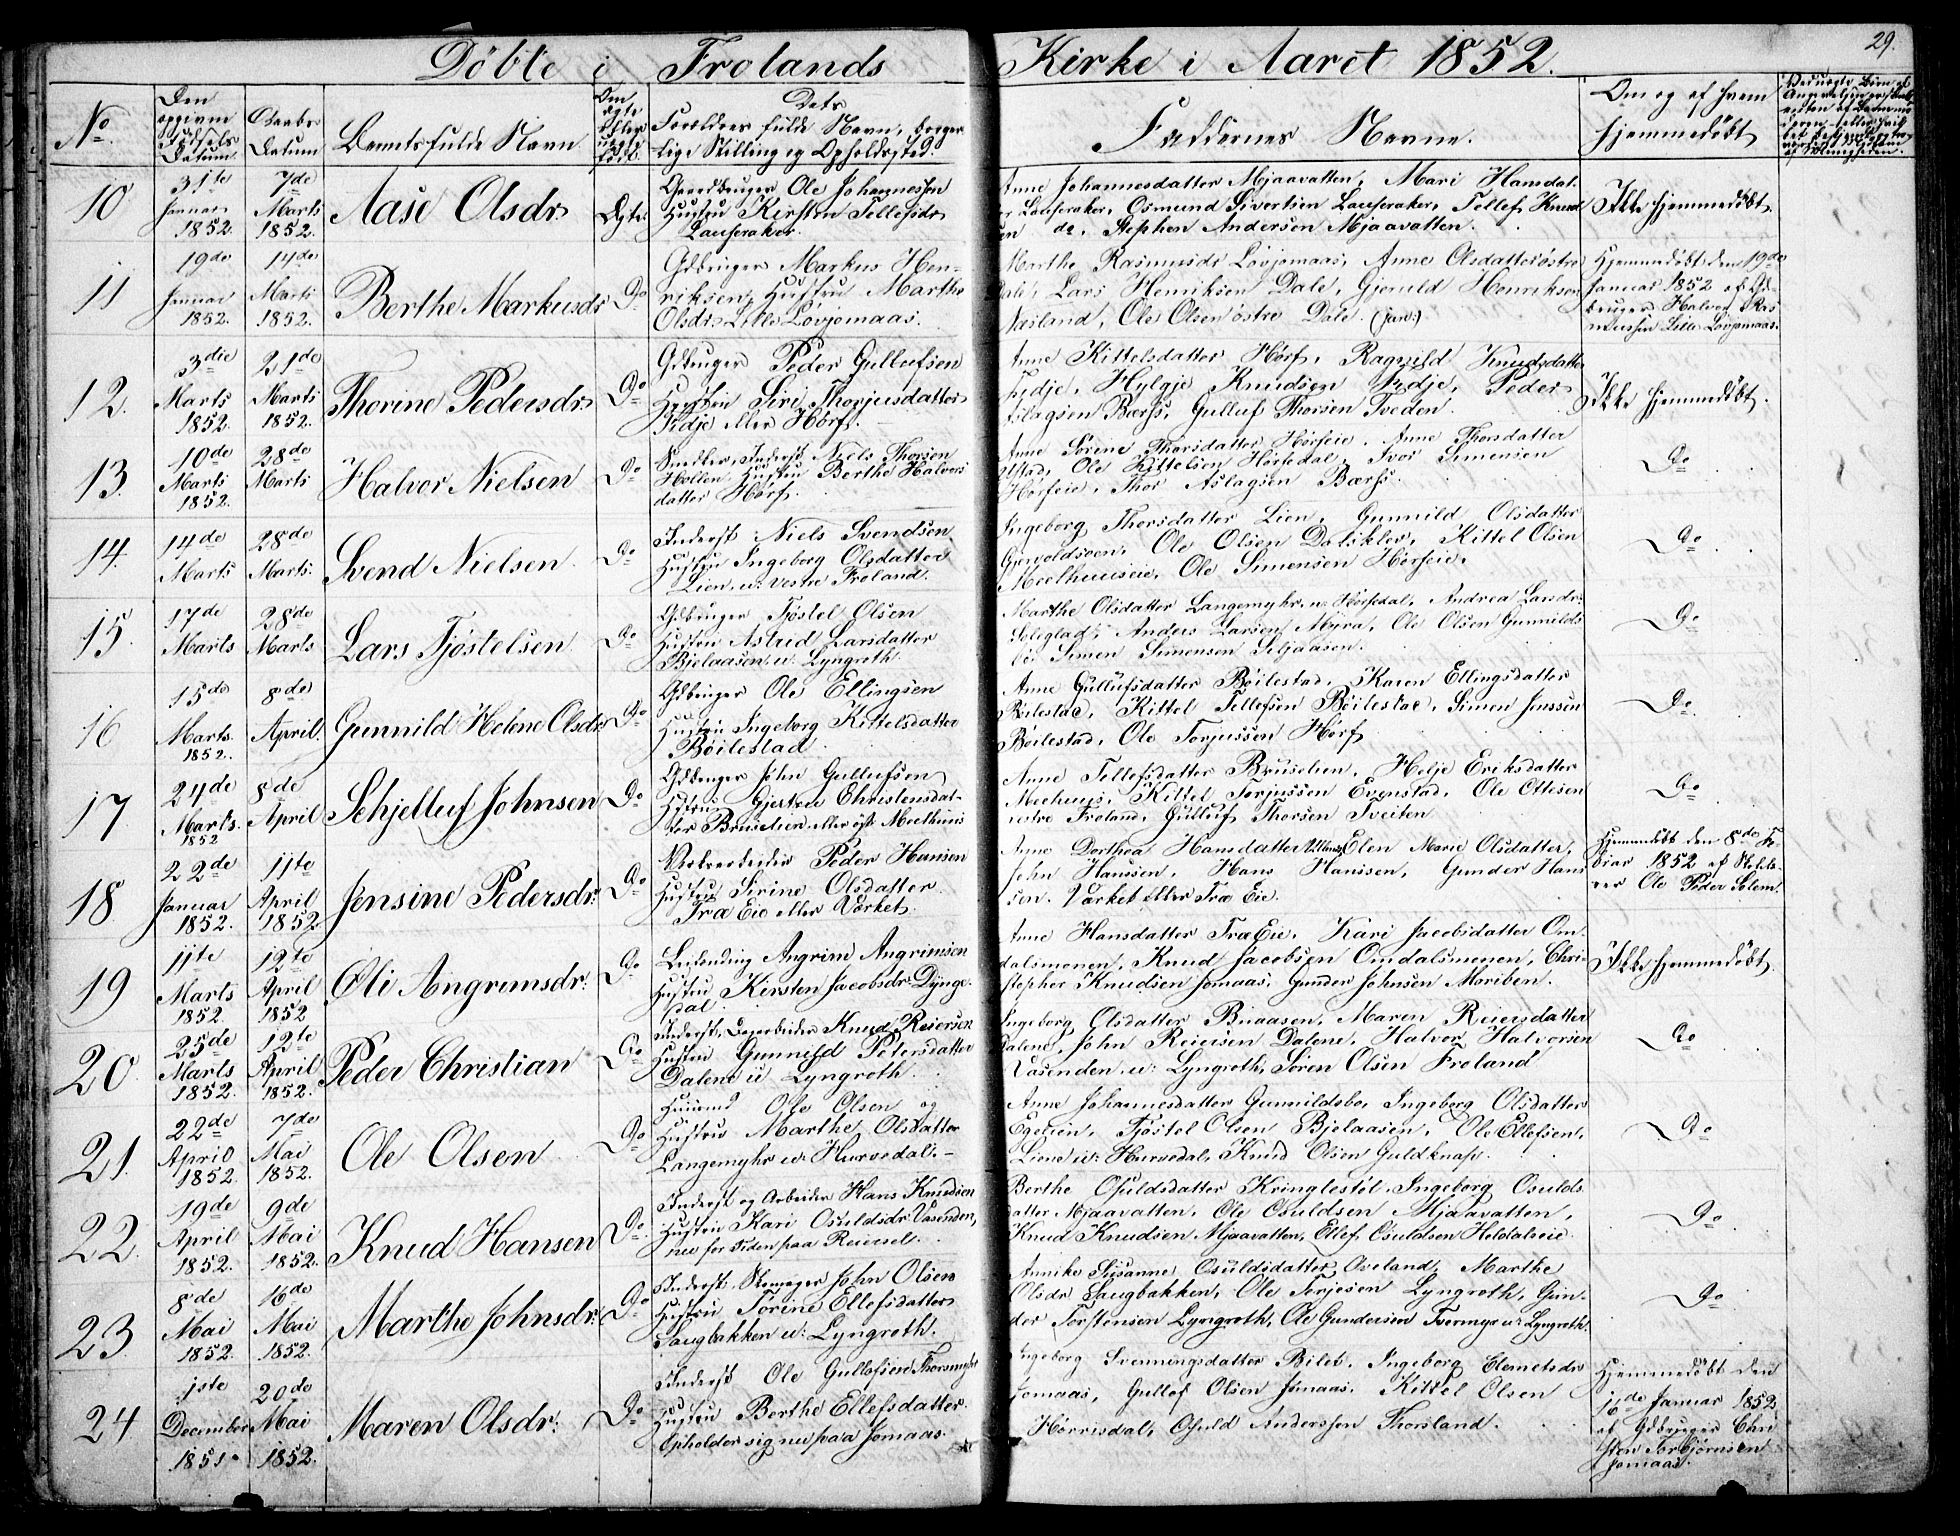 Döbte i Frolands Kirke i Aaret 1852.
29.
No.
Den opgivne Födsels Datum.
Daabs Datum
Barnets fulde Navn.
Om ægte eller uægte född.
Dets Forældres fulde Navn, borgerlige Stilling og Opholdssted.
Faddernes Navne.
Om og af hvem hjemmedöbt
10
31te Januar 1852.
7de Marts 1852.
Aase Olsdr
Ægte.
Gaardbruger Ole Johannessen
Hustru Kirsten Tellefsdr
Lauveraker.
Anne Johannesdatter Mjaavatten, Mari Hansdat-
er Lauveraker, Osmund Sivertsen Lauveraker, Tellef Knud
sen do, Stephen Andersen Mjaavatten.
Ikke hjemmedöbt.
11
19de Januar 1852.
14de Marts 1852.
Berthe Markusdr
Do
Gdbruger Markus Hen-
riksen, Hustru Marthe
Olsdr Lille Lövjomaas.
Marthe Rasmusdr Lövjomaas, Anne Olsdatter östre
Dale, Lars Henriksen Dale, Gjeruld Henriksen
Næsland, Ole Olsen östre Dale. (jun:)
Hjemmedöbt den 19de
Januar 1852 af Gd-
bruger Halvor Ras
mussen Lille Lövjomaas.
12.
3die Marts 1852.
21de Marts 1852.
Thorine Pedersdr
Do
Gdbruger Peder Gullufsen
Hustru Siri Thorjusdatter
Fidje eller Hörf.
Anne Kittelsdatter Hörf, Ragnild Knudsdatter
Fidje, Hylgje Knudsen Fidje, Peder
Aslagsen Bærfs, Gulluf Thorsen Tveden.
Ikke hjemmedöbt.
13.
10de Marts 1852.
28de Marts
Halvor Nielsen
Do
Snedker, Inderst Niels Thorsen
Hollen Hustru Berthe Halvors
datter Hörf.
Anne Sörine Thorsdatter Hörfeie. Anne Thorsdatter
Ustad, Ole Kittelsen Hörfedal, Ivor Simensen
Hörfeie, Thor Aslagsen Bærfs.
Do
14.
14de Marts
28de Marts.
Svend Nielsen
Do
Inderst Niels Svendsen
Hustru Ingeborg Olsdatter
Lien, u: vestre Froland.
Ingeborg Thorsdatter Lien, Gunnild Olsdatter
Ole Olsen Dalsklev, Kittel Olsen
Meelhuuseie, Ole Simensen Hörfeie.
Do
15.
17de Marts
28de Marts
Lars Tjöstelsen
Do
Gdbruger Tjöstel Olsen
Hustru Astrid Larsdatter
Bjelaasen u: Lyngroth.
Marthe Olsdatter Langemyhr u: Hörfedal, Andrea Larsdr.
Soleglad, Anders Larsen Myra, Ole Olsen Gunnilds
bo, Simen Simensen Seljaasen.
Do
16
15de Marts. 1852.
8de April.
Gunnild Helene Olsdr
Do
Gdbruger Ole Ellingsen
Hustru Ingeborg Kittelsdatter
Böilestad
Anne Gullufsdatter Böilestad, Karen Ellingsdatter
Böilestad, Kittel Tellefsen Böilestad, Simen Jenssen
Böilestad, Ole Torjussen Hörf
Do
17
24de Marts. 1852
8de April
Schjelluf Johnsen
Do
Gdbruger John Gullufsen
Hustru Gjertru Christensdat-
ter Bruselien eller öst Meelhuus
Anne Tellefsdatter Bruselien. Helje Eriksdatter
Meehuus, Kittel Torjussen Evenstad, Ole Ottesen
vestre Froland, Gulluf Thorsen Tveiten
Do
18
22de Januar 1852.
11te April 1852
Jensine Pedersdr:
Do
Værkarbeider Peder Hansen
Hustru Sirine Olsdatter
Træ Eie eller Værket.
Anne Dorthea Hansdatter Elen Marie Olsdatter,
John Hanssen, Hans Hanssen, Gunder Hans
sen. Værket eller Træ Eie.
Hjemmedöbt den 8de Fe-
bruar 1852 af Skolelæ-
rer Ole Peder Solem.
19
11te Marts 1852.
12te April 1852
Oli Angrimsdr:
Do
Leilending Angrim Angrimsen
Hustru Kirsten Jacobsdr Dynge-
dal.
Anne Hansdatter Træ Eie. Kari Jacobsdatter Om-
dalsmonen, Knud Jacobsen Omdalsmonen, Chri-
stopher Knudsen Jomaas, Gunder Johnsen Moriben.
Ikke hjemmedöbt.
20.
25de Marts 1852.
12te April 1852.
Peder Christian
Do
Inderst, Knud Reiersen
Hustru Gunnild Petersdatter
Dalene u Lyngroth.
Ingeborg Olsdatter Buaasen, Maren Reiersdatter
Dalene, John Reiersen Dalene, Halvor Halvorsen
Vasenden u: Lyngroth, Sören Olsen Froland
Do
21.
22de April 1852.
7de Mai 1852.
Ole Olsen
Do
Huusmd Ole Olsen og
Hustru Marthe Olsdatter
Langemyhr u: Hurvedal.
Anne Johannesdatter Gunnildsbo, Ingeborg Olsdatter
Egelien, Tjöstel Olsen Bjelaasen, Ole Ellefsen,
Liene u: Hurvedal, Knud Olsen Guldknap.
Do
22.
19de April 1852.
9de Mai 1852.
Knud Hansen
Do
Inderst og Arbeider Hans Knudsen
Hustru Kari Osuldsdr Vasenden,
nu for Tiden paa Reiersel.
Berthe Osuldsdatter Kringlestöl, Ingeborg Osulds
datter Mjaavatten, Ole Osuldsen Mjaavatten,
Knud Knudsen Mjaavatten, Ellef Osuldsen Heldaleie
Do
23
8de Mai 1852.
16de Mai 1852.
Marthe Johnsdr:
Do
Inderst, Skomager John Olsen
Hustru Törine Ellefsdatter
Saugbakken u: Lyngroth.
Annike Susanne Osuldsdatter Oveland, Marthe
Olsdr Saugbakken, Ole Torjesen Lyngroth, Gun-
der Torstensen Lyngroth, Ole Gundersen Tvermyr u: Lyngroth.
Do
24
1ste December 1851.
20de Mai 1852.
Maren Olsdr:
Do
Inderst Ole Gullofsen Thorsmyhr
Hustru Berthe Ellefsdatter
Opholder sig nu paa Jomaas.
Ingeborg Svenningsdatter Bilet, Ingeborg Clemetsdr
Jomaas, Gullof Olsen Jomaas, Kittel Olsen
Hörrisdal, Osuld Anderssen Thorsland.
Hjemmedöbt den
16de Januar 1852
af Gdbruger Chri
sten Torbjörnsen
Jomaas.